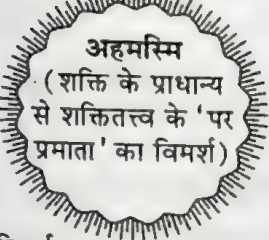 अहमस्मि
( शक्ति के प्राधान्य
से शक्तितत्त्व के 'पर
प्रमाता' का विमर्श )